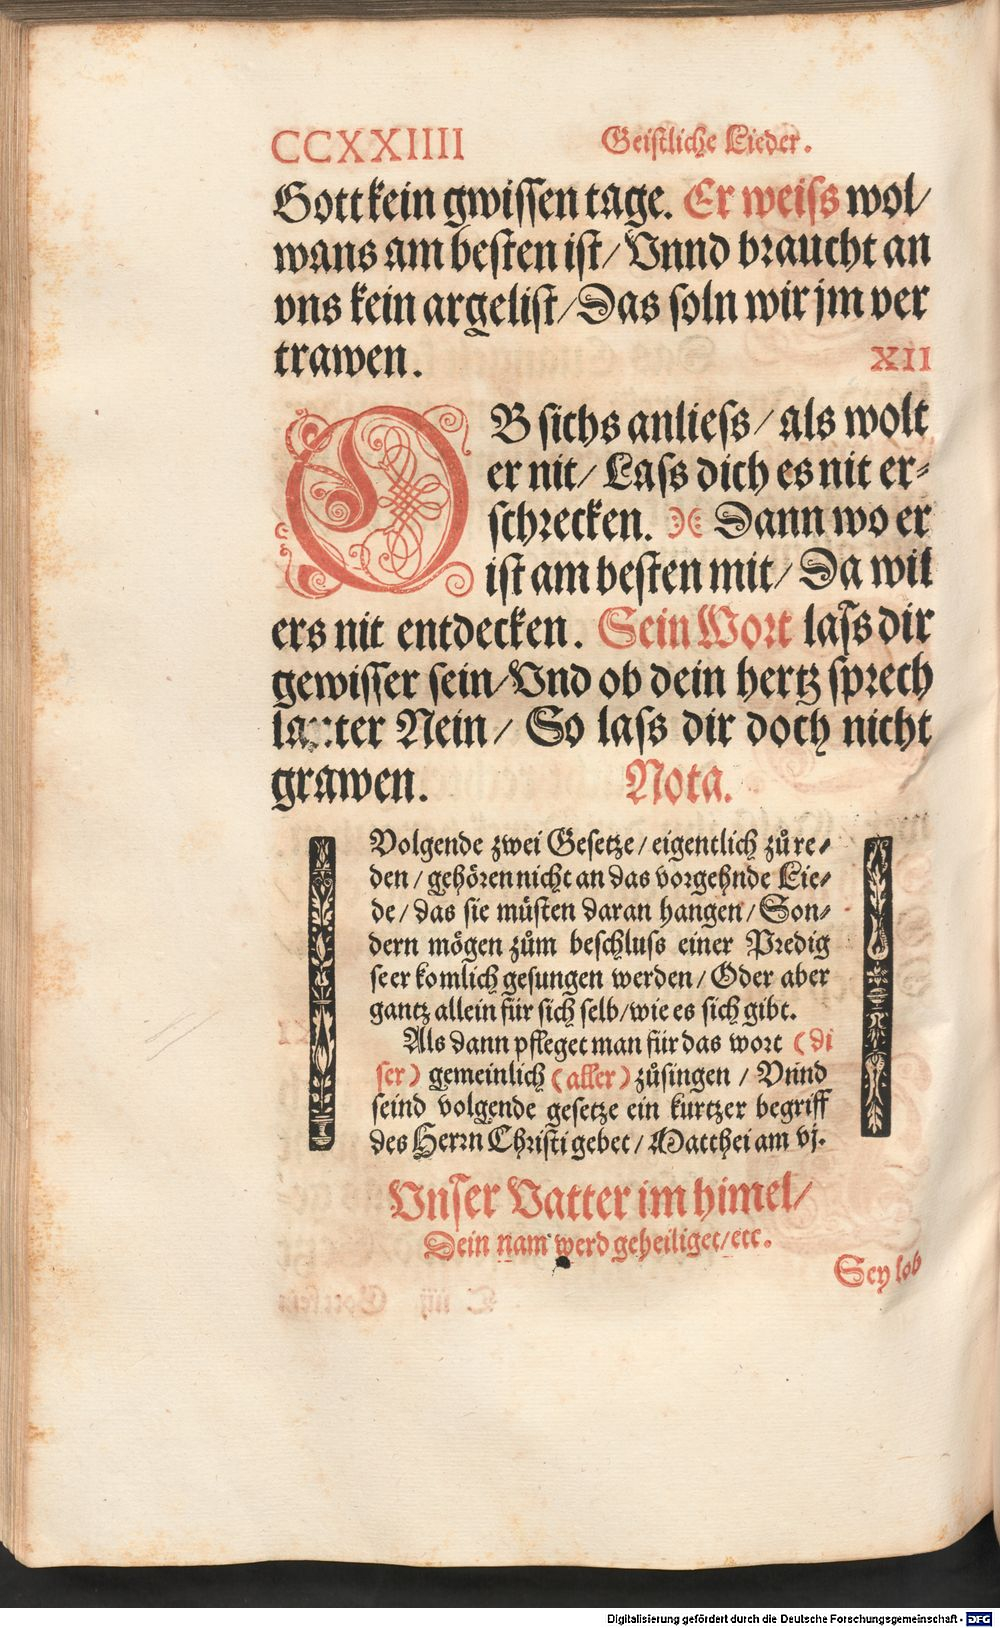 CCXXIIII Geistliche Lieder.
Gott kein gwissen tage. Er weiss wol/
wans am besten ist/ Vnnd braucht an
vns kein argelist/ Das soln wir jm ver
trawen. XII
OB sichs anliess/ als wolt
er nit/ Lass dich es nit er-
schrecken. Dann wo er
ist am besten mit/ Da wil
ers nit entdecken. Sein Wort lass dir
gewisser sein/ Vnd ob dein hertz sprech
lauter Nein/ So lass dir doch nicht
grawen. Nota.
Volgende zwei Gesetze/ eigentlich zůre-
den/ gehören nicht an das vorgehnde Lie-
de/ das sie müsten daran hangen/ Son-
dern mögen zům beschluss einer Predig
seer komlich gesungen werden/ Oder aber
gantz allein für sich selb/ wie es sich gibt.
Als dann pfleget man für das wort (di
ser) gemeinlich (aller) zůsingen/ Vnnd
seind volgende gesetze ein kurtzer begriff
des Herrn Christi gebet/ Matthei am vj.
Vnser Vatter im himel/
Dein nam werd geheiliget/ etc.
Sey lob
Digitalisierung gefördert durch die Deutsche Forschungsgemeinschaft - DFG